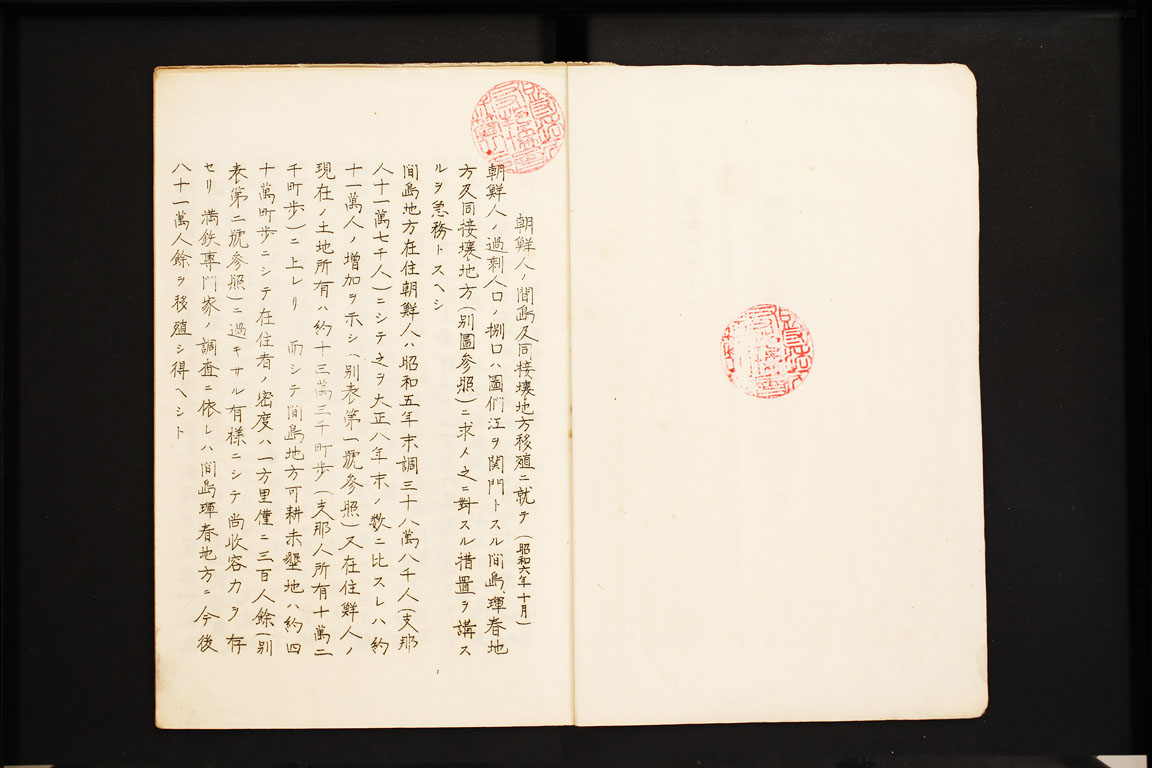 朝鮮人ノ間島及同接壤地方移殖ニ就テ(昭和六年十月)
朝鮮人ノ過剰人口ノ捌口ハ圖們江ヲ関門トスル間島、琿春地
方及同接壤地方(別圖參照)ニ求メ之ニ對スル措置ヲ講ス
ルヲ急務トスヘシ
間島地方在住朝鮮人ハ昭和五年末調三十八萬八千人(支那
人十一萬七千人)ニシテ之ヲ大正八年末ノ数ニ比スレハ約
十一萬人ノ増加ヲ示シ(別表第一號參照)又在住鮮人ノ
現在ノ土地所有ハ約十三萬三千町歩(支那人所有十萬二
千町歩)ニ上レリ 而シテ間島地方可耕未墾地ハ約四
十萬町歩ニシテ在住者ノ密度ハ一方里僅ニ三百人餘(別
表第二號參照)ニ過キサル有様ニシテ尚收容力ヲ存
セリ 満鉄専門家ノ調査ニ依レハ間島琿春地方ニ今後
八十一萬人餘ヲ移殖シ得ヘシト